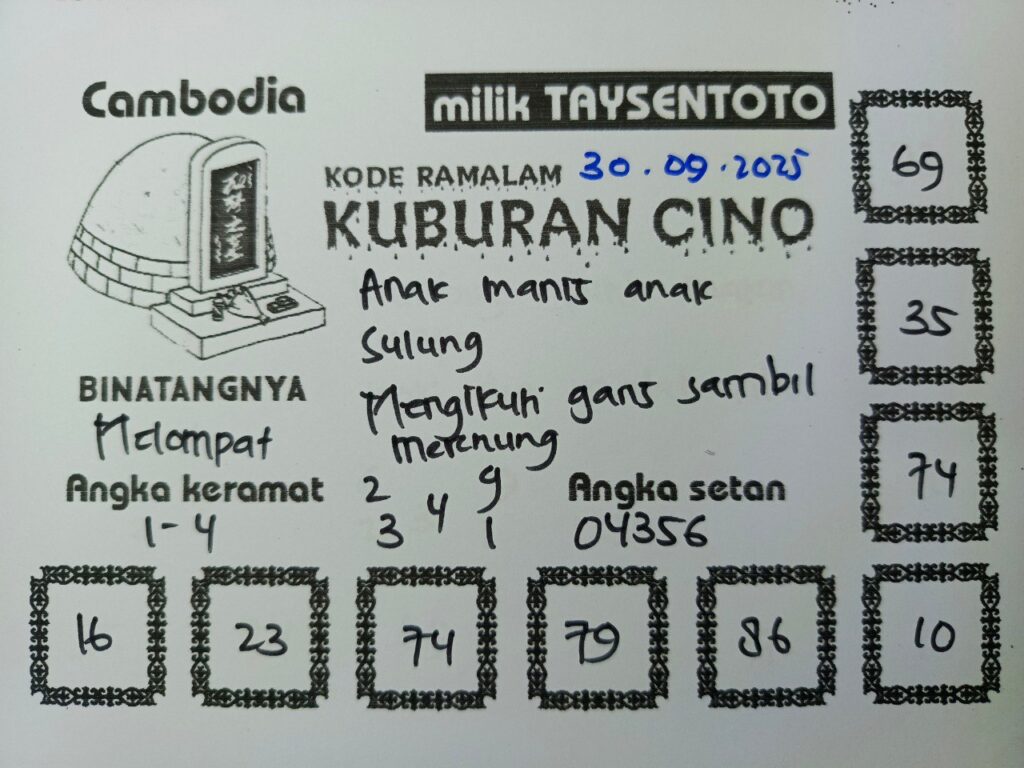 Cambodia
milik TAYSENTOTO
KODE RAMALAM 30.09.2025
KUBURAN CINO
Anak manis anak
Sulung
Mengikuti garis sambil
merenung
BINATANGNYA
Melompat
Angka keramat
1-4
2 9
4
3 1
Angka setan
04356
69
35
74
16 23 74 79 86 10